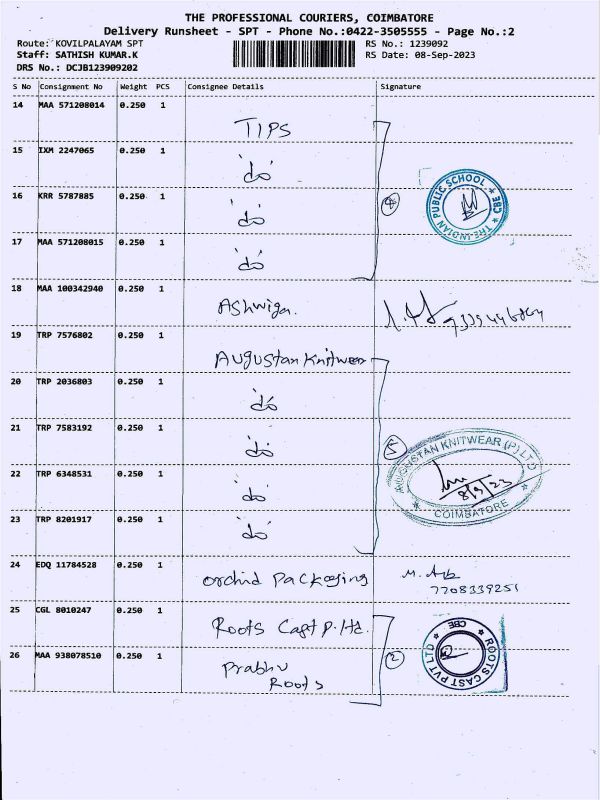 THE PROFESSIONAL COURIERS, COIMBATORE
Delivery Runsheet - SPT - Phone No.:0422-3505555 - Page No.:2
Route: KOVILPALAYAM SPT
RS No.: 1239092
Staff: SATHISH KUMAR.K
RS Date: 08-Sep-2023
DRS No.: DCJB123909202
S No Consignment No Weight PCS Consignee Details Signature
14 MAA 571208014 0.250 1 TIPS
15 IXM 2247065 0.250 1 'do'
16 KRR 5787885 0.250 1 'do' 4 THE INDIAN PUBLIC SCHOOL CBE
17 MAA 571208015 0.250 1 'do'
18 MAA 100342940 0.250 1 Ashwiga.
19 TRP 7576802 0.250 1 Augustan Knitwear
20 TRP 2036803 0.250 1 'do'
21 TRP 7583192 0.250 1 'do' 5 AUGUSTAN KNITWEAR (P) LTD
22 TRP 6348531 0.250 1 'do' 8/9/23
COIMBATORE
23 TRP 8201917 0.250 1 'do'
24 EDQ 11784528 0.250 1 Orchid Packaging 7708339251
25 CGL 8010247 0.250 1 Roots Cast P. ltd. ROOTS CAST PVT LTD CBE
26 MAA 938078510 0.250 1 Prabhu 2
Roots